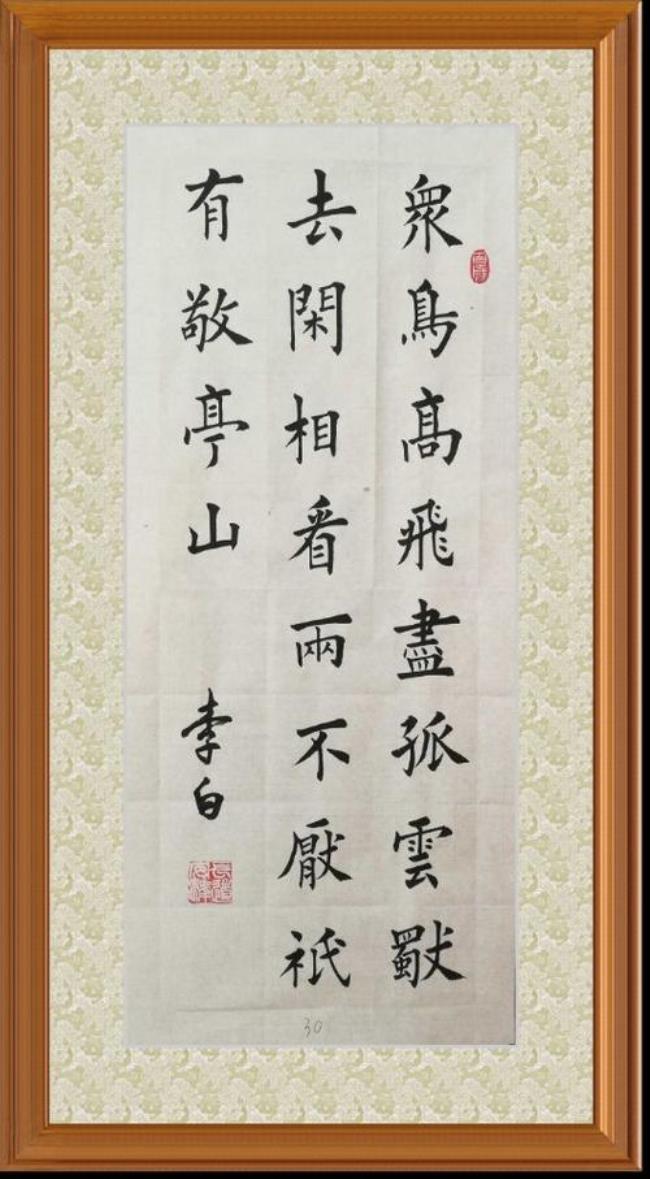 衆鳥高飛盡孤雲獸
去閑相看兩不厭祇
有敬亭山 李白
30